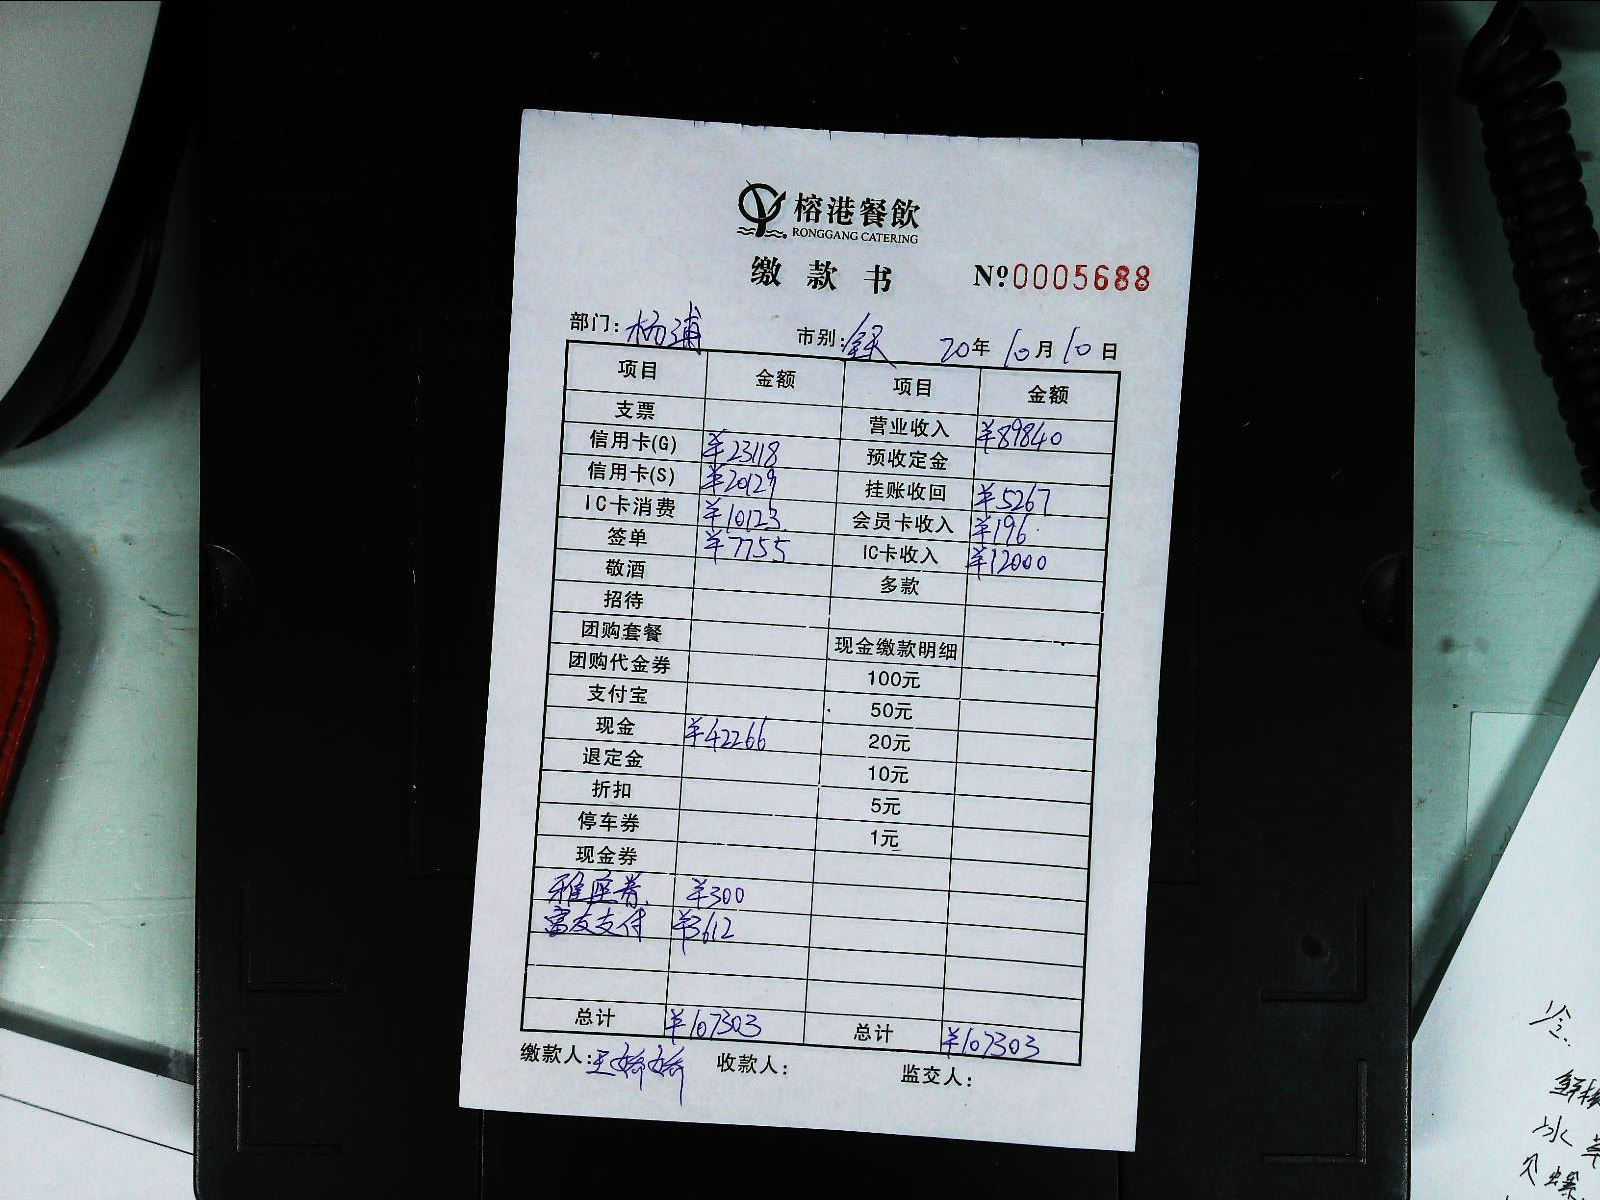 榕港餐飲
RONGGANG CATERING
缴款书 Nº0005688
部门: 杨浦 市别: 20年10月10日
项目 金额 项目 金额
支票 营业收入 ¥89840
信用卡(G) ¥23118 预收定金
信用卡(S) ¥20129 挂账收回 ¥5267
IC卡消费 ¥10123 会员卡收入 ¥196
签单 ¥7755 IC卡收入 ¥12000
敬酒 多款
招待
团购套餐 现金缴款明细
团购代金券 100元
支付宝 50元
现金 ¥42266 20元
退定金 10元
折扣 5元
停车券 1元
现金券
雅座券 ¥300
富友支付 ¥3612
总计 ¥107303 总计 ¥107303
缴款人: 王娇娇 收款人: 监交人:
冷
冰